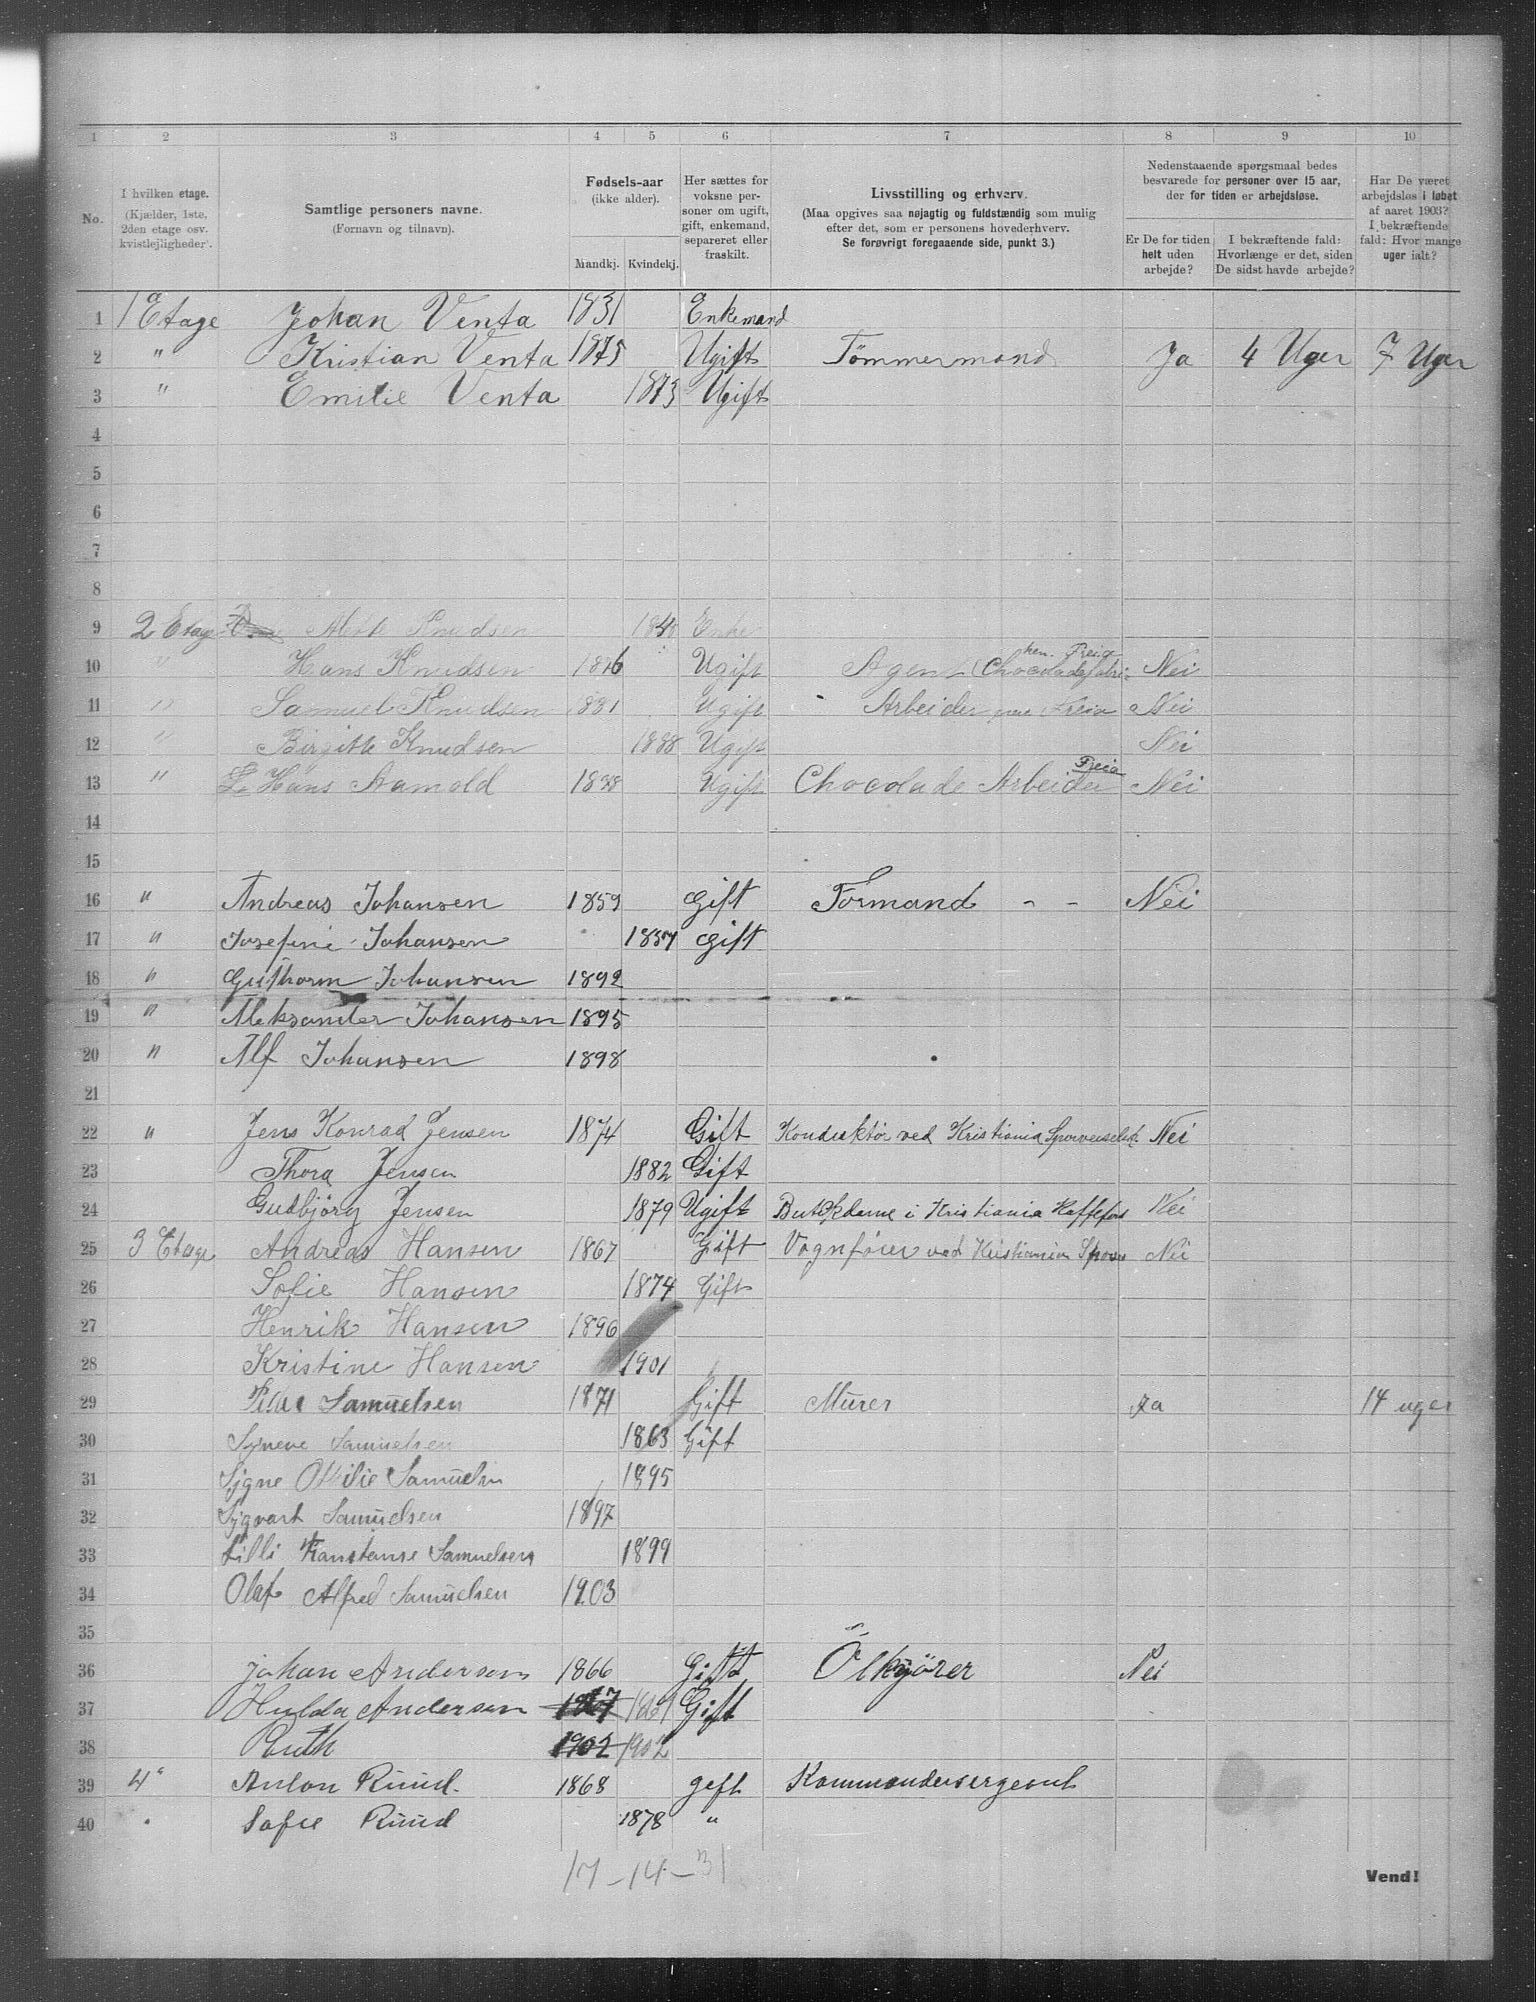 1 2 3 4 5 6 7 8 9 10
No. I hvilken etage. (Kjælder, 1ste, 2den etage osv. kvistlejligheder). Samtlige personers navne. (Fornavn og tilnavn). Fødsels-aar (ikke alder). Mandkj. Kvindekj. Her sættes for voksne personer om ugift, gift, enkemand, separeret eller fraskilt. Livsstilling og erhverv. (Maa opgives saa nøjagtig og fuldstændig som mulig efter det, som er personens hovederhverv. Se forøvrigt foregaaende side, punkt 3.) Nedenstaaende spørgsmaal bedes besvarede for personer over 15 aar, der for tiden er arbejdsløse. Er De for tiden helt uden arbejde? I bekræftende fald: Hvorlænge er det, siden De sidst havde arbejde? Har De været arbejdsløs i løbet af aaret 1903? I bekræftende fald: Hvor mange uger ialt?
1 1 Etage Johan Venta 1831 Enkemand
2 " Kristian Venta 1875 Ugift Tømmermand Ja 4 Uger 7 Uger
3 " Emilie Venta 1873 Ugift
4
5
6
7
8
9 2 Etage Knudsen Enke
10 " Hans Knudsen 1876 Ugift Agent Freia Nei
11 " Samuel Knudsen Ugift Arbeider Freia Nei
12 " Birgitte Knudsen 1888 Ugift Nei
13 " Hans Ugift Chocolade Arbeider Freia Nei
14
15
16 " Andreas Johansen 1859 Gift Formand - - Nei
17 " Josefine Johansen 1857 gift
18 " Guthorm Johansen 1892
19 " Aleksander Johansen 1895
20 " Alf Johansen 1898
21
22 " Jens Konrad Jensen 1874 Gift Konduktør ved Kristiania Nei
23 Thora Jensen 1882 Gift
24 Gudbjörg Jensen 1879 Ugift i Kristiania Nei
25 3 Etage Andreas Hansen 1867 Gift Vognfører ved Kristiania Nei
26 Sofie Hansen 1874 Gift
27 Henrik Hansen 1896
28 Kristine Hansen 1901
29 Samuelsen 1871 Gift Murer Ja 14 uger
30 Samuelsen 1863 Gift
31 Signe Otilie Samuelsen 1895
32 Sigvart Samuelsen 1897
33 Lilli Konstanse Samuelsen 1899
34 Olaf Alfred Samuelsen 1903
35
36 Johan Andersen 1866 Gift Ölkjörer Nei
37 Hulda Andersen 1867 1867 Gift
38 Ruth 1902 1902
39 4" Anton Ruud. 1868 gift Kommandersergeant
40 Sofie Ruud 1878 "
17 - 14 - 31
Vend!